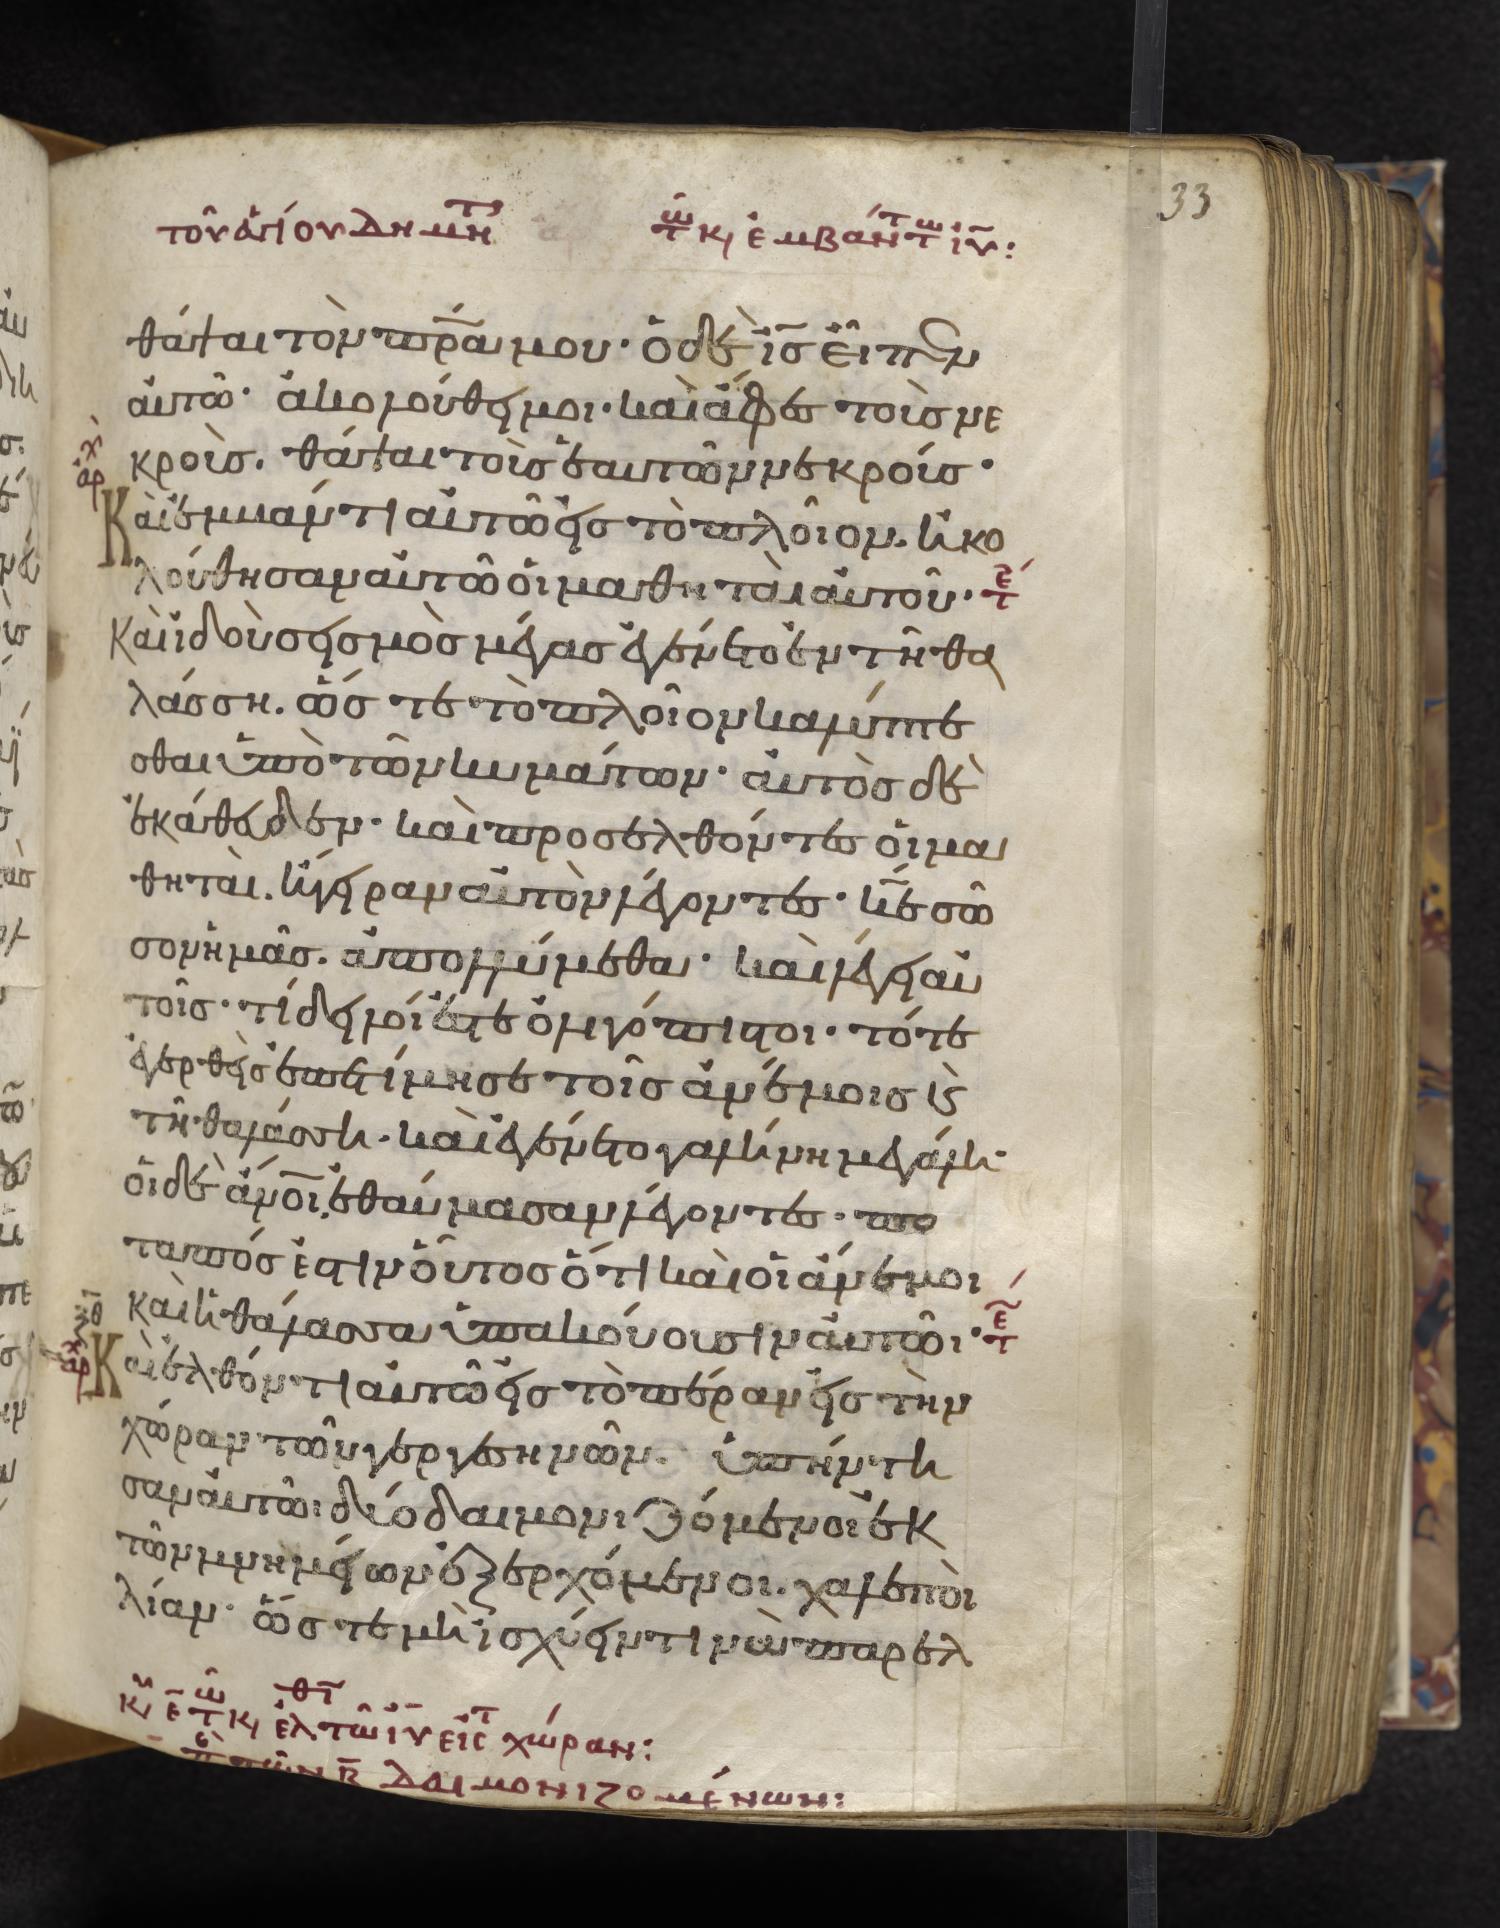 33
τοῦ ἁγίου Δημητ τω κ, ἐμβάντι τω ιυ:
θάψαι τὸν πρ̅α μου· ὁ δὲ ι̅σ̅ εἶπεν
αὐτῶ· ἀκολούθει μοι· καὶ ἄφες τοὺσ νε
κροὺσ. θάψαι τοὺσ ἑαυτῶν νεκρούσ·
ἀρχ
Καὶ ἐμβάντι αὐτῶ εἰσ τὸ πλοῖον. ἠκο
λούθησαν αὐτῶ οἱ μαθηταὶ αὐτοῦ· τε
Καὶ ἰδοὺ σεισμὸσ μέγασ ἐγένετο ἐν τῆ θα
λάσση. ὥστε τὸ πλοῖον καλύπτε
σθαι ὑπὸ τῶν κυμάτων· αὐτὸσ δὲ
ἐκάθευδεν· καὶ προσελθόντεσ οἱ μα
θηταὶ. ἤγειραν αὐτὸν λέγοντεσ· κ̅ε̅ σῶ
σον ἡμᾶσ. ἀπολλύμεθα· καὶ λέγει αὐ
τοῖσ· τί δειλοί ἐστε ὀλιγόπιστοι· τότε
ἐγερθεὶσ ἐπετίμησε τοῖσ ἀνέμοισ κς
τῆ θαλάσση· καὶ ἐγένετο γαλήνη μεγάλη·
οἱ δὲ ἄν̅ο̅ι̅. ἐθαύμασαν λέγοντεσ· πο
ταπόσ ἐστιν οὗτοσ ὅτι καὶ οἱ ἄνεμοι
καὶ ἡ θάλασσα ὑπακούουσιν αὐτῶι· τε
ξθ
ἀρχ
Καὶ ἐλθόντι αὐτῶ εἰσ τὸ πέραν εἰσ τὴν
χώραν τῶν γεργεσηνῶν. ὑπήντη
σαν αὐτῶι δύο δαιμονιζόμενοι ἐκ
τῶν μνημείων ἐξερχόμενοι. χαλεποὶ
λίαν· ὥστε μὴ ἰσχύειν τινὰ παρελ
τω κ, ἐλθτ τῶ ιυ εἰς τ χώραν:
π τῶν β δαιμονιζομένων: